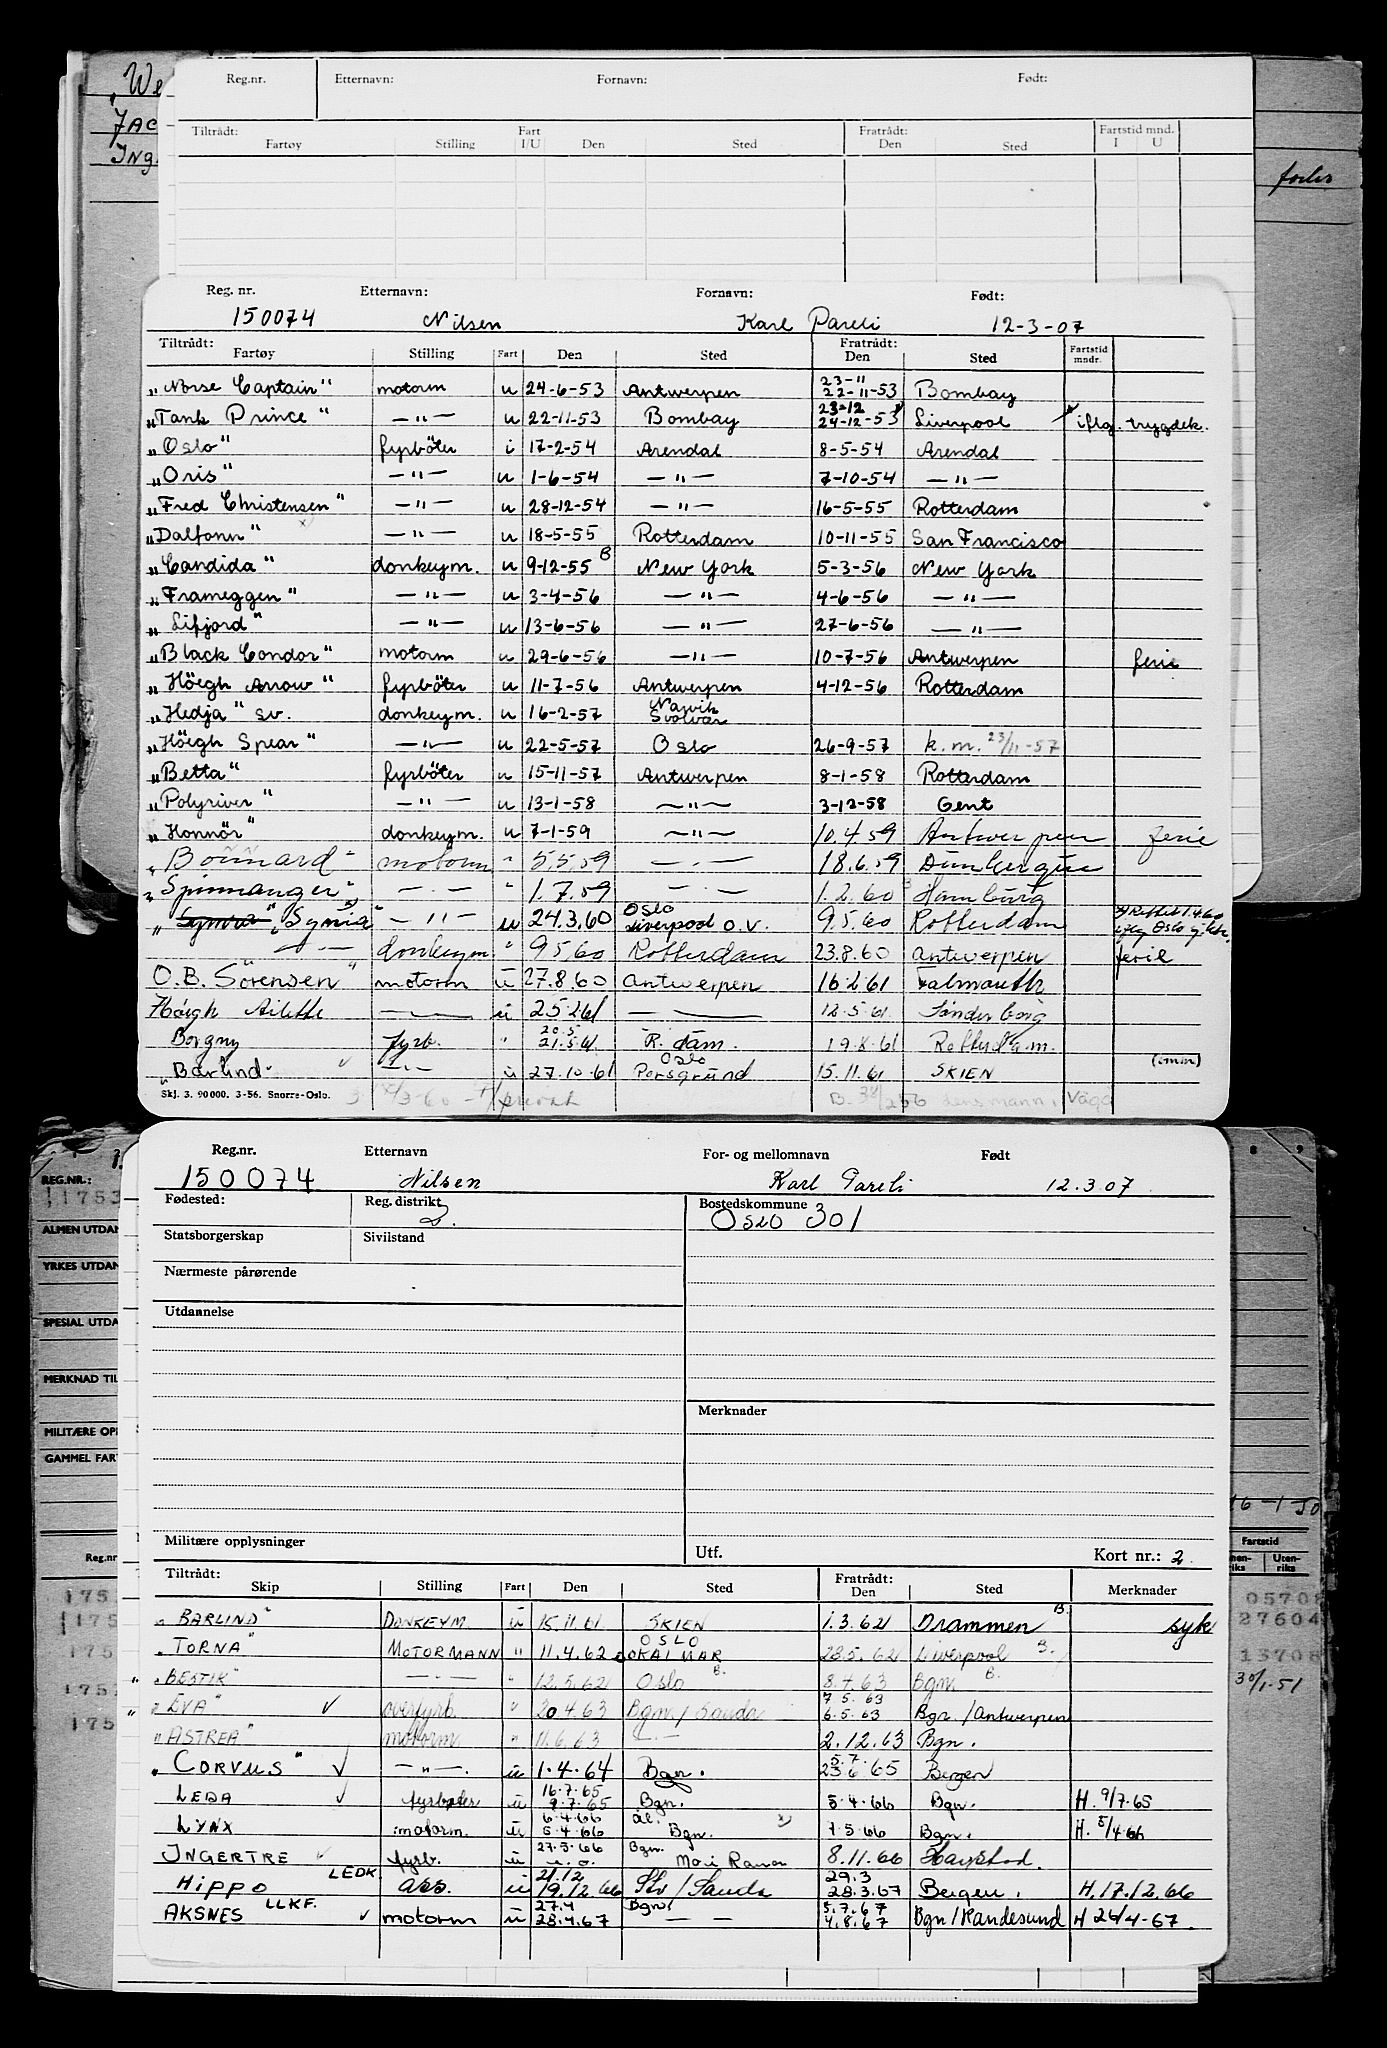 "We
Jac
Ing.
forlis
Reg.nr. Etternavn: Fornavn: Født:
Tiltrådt: Fartøy Stilling Fart I/U Den Sted Fratrådt: Den Sted Fartstid mnd. I U
Reg. nr. Etternavn: Fornavn: Født:
150074 Nilsen Karl Pareli 12-3-07
Tiltrådt: Fartøy Stilling Fart Den Sted Fratrådt: Den Sted Fartstid mndr.
"Norse Captain" motorm u 24-6-53 Antwerpen 23-11 22-11-53 Bombay
"Tank Prince" —"— u 22-11-53 Bombay 23-12 24-12-53 Liverpool iflg. trygdek.
"Oslo" fyrböter i 17-2-54 Arendal 8-5-54 Arendal
"Oris" —"— u 1-6-54 —"— 7-10-54 —"—
"Fred Christensen" —"— u 28-12-54 —"— 16-5-55 Rotterdam
"Dalfonn" —"— u 18-5-55 Rotterdam 10-11-55 San Francisco
"Candida" donkeym. u 9-12-55 B New York 5-3-56 New York
"Frameggen" —"— u 3-4-56 —"— 4-6-56 —"—
"Lifjord" —"— u 13-6-56 —"— 27-6-56 —"—
"Black Condor" motorm u 29-6-56 —"— 10-7-56 Antwerpen ferie
"Höegh Arrow" fyrböter u 11-7-56 Antwerpen 4-12-56 Rotterdam
"Hedja" sv. donkeym. u 16-2-57 Narvik Svolvær
"Höegh Spear" —"— u 22-5-57 Oslo 26-9-57 k.m. 23/11-57
"Betta" fyrböter u 15-11-57 Antwerpen 8-1-58 Rotterdam
"Polyriver" —"— u 13-1-58 —"— 3-12-58 Gent
"Honnör" donkeym. u 7-1-59 —"— 10.4.59 Antwerpen ferie
"Bonnard" motorm " 5.5.59 —.— 18.6.59 Dunkerque
"Spinnanger" —.— " 1.7.59 —.— 1.2.60 Hamburg
"Symra" "Symia" —"— u 24.3.60 Oslo Liverpool o.v. 9.5.60 Rotterdam x) Rettet 1.4.60 iflg Oslo
—"— donkeym " 9.5.60 Rotterdam 23.8.60 Antwerpen ferie
O.B. Sörensen" motorm u 27.8.60 Antwerpen 16.2.61 Falmouth
Höigh Ailette —"— u 25.2.61 —"— 12.5.61 Sönderborg
Borgny fyrb. " 20.5 21.5.61 R.dam. 19.8.61 Rotterdam.
"Barlind" —"— u 27.10.61 Oslo Porsgrund 15.11.61 SKIEN (omm)
Skj. 3. 90000. 3-56. Snorre-Oslo. privat B. 34/256 lensmann, Våga
Reg.nr. Etternavn For- og mellomnavn Født
150074 Nilsen Karl Pareli 12.3.07
Fødested: Reg. distrikt 2. Bostedskommune
Oslo 301
Statsborgerskap Sivilstand
Nærmeste pårørende
Utdannelse
Merknader
Militære opplysninger Utf. Kort nr.: 2.
Tiltrådt: Skip Stilling Fart Den Sted Fratrådt: Den Sted Merknader
"BARLIND" DONKEYM u 15.11.61 SKIEN 1.3.62 Drammen B. syk
"TORNA" MOTORMANN " 11.4.62 OSLO KALMAR 28.5.62 Liverpool B.
"BESTIK" —"— " 12.5.62 Oslo B. 8.4.63 Bgn. B.
"EVA" overfyrb. " 20.4.63 Bgn./Sauda 7.5.63 6.5.63 Bgn./Antwerpen
"ASTREA" motorm " 11.6.63 —"— 2.12.63 Bgn.
"CORVUS" —"—. u 1.4.64 Bgn. 5.7. 23.6.65 Bergen
LEDA fyrböter u 16.7.65 9.7.65 Bgn. 5.4.66 Bgn. H. 9/7.65
LYNX motorm. u 6.4.66 5.4.66 ål. Bgn. x) 7.5.66 Bgn. H. 5/4.66
INGERTRE fyrb. u 27.5.66 Bgn. Mo i Rana 8.11.66 Haugstad.
HIPPO LEDK ass. u 21.12 19.12.66 Sto/Sauda 29.3 28.3.67 Bergen. H.17.12.66
AKSNES LLKF. motorm u 27.4 28.4.67 Bgn. — — 5.7.67 4.8.67 Bgn/Randesund H 26/4-67.
REG.NR.:
1753
ALMEN UTDAN
YRKES UTDAN
SPESIAL UTDA
MERKNAD TIL
MILITÆRE OPP
GAMMEL FAR
Reg.nr
175
175
175
175
175
8 9
16-1-50
Fartstid
nen-riks Uten-riks
05708
27604
13708
30/1-51